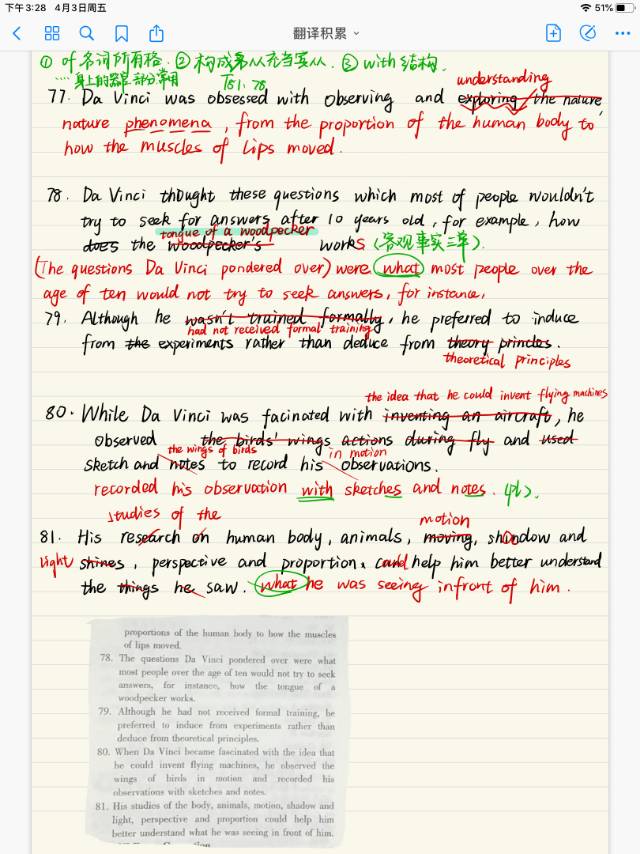 下午3:28 4月3日周五
51%
翻译积累
① of 名词所有格. ② 构成
③ with结构.
身上的器官部分常用
T81、78
understanding
77. Da Vinci was obsessed with observing and exploring the nature,
nature phenomena, from the proportion of the human body to
how the muscles of lips moved.
78. Da Vinci thought these questions which most of people wouldn't
try to seek for answers after 10 years old, for example, how
tongue of a woodpecker
does the woodpecker's works (客观事实三单).
(The questions Da Vinci pondered over) were what most people over the
age of ten would not try to seek answers, for instance,
79. Although he wasn't trained formally, he preferred to induce
had not received formal training
from the experiments rather than deduce from theory princles.
theoretical principles
the idea that he could invent flying machines
80. While Da Vinci was facinated with inventing an aircraft, he
observed the birds' wings actions during fly and used
the wings of birds in motion
sketch and notes to record his observations.
recorded his observation with sketches and notes.
studies of the
motion
81. His research on human body, animals, moving, shadow and
light shines, perspective and proportion, could help him better understand
the things he saw. what he was seeing infront of him.
proportions of the human body to how the muscles
of lips moved.
78. The questions Da Vinci pondered over were what
most people over the age of ten would not try to seek
answers, for instance, how the tongue of a
woodpecker works.
79. Although he had not received formal training, he
preferred to induce from experiments rather than
deduce from theoretical principles.
80. When Da Vinci became fascinated with the idea that
he could invent flying machines, he observed the
wings of birds in motion and recorded his
observations with sketches and notes.
81. His studies of the body, animals, motion, shadow and
light, perspective and proportion could help him
better understand what he was seeing in front of him.